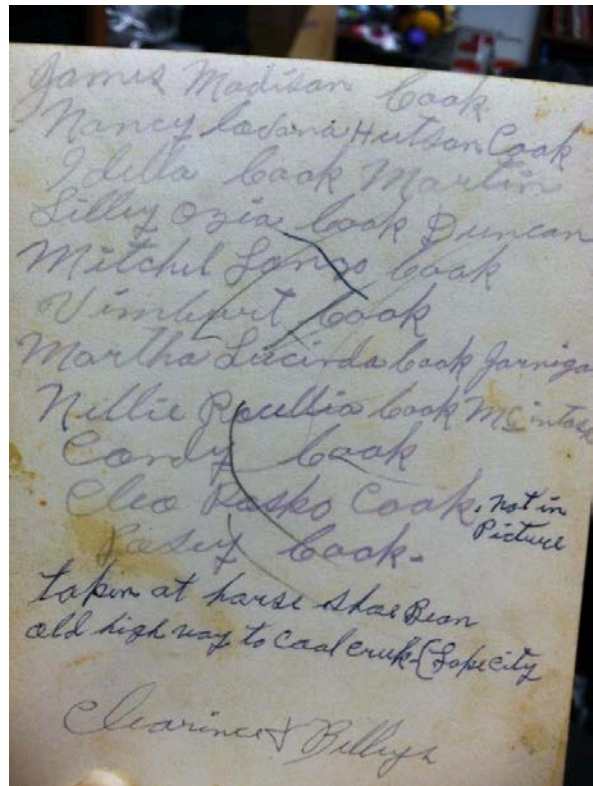 James Madison Cook
Nancy Hutson Cook
Idella Cook Martin
Lilley Ozia Cook Duncan
Mitchel Lonzo Cook
Vimburt Cook
Martha Lucinda Cook Jarnigan
Nillie Cook McIntosh
Condy Cook
Cleo Rosko Cook. not in
Picture
Posey Cook.
Taken at harse shoe Bean
old high way to Coal Creek (Lake City
Clearince & Billeys